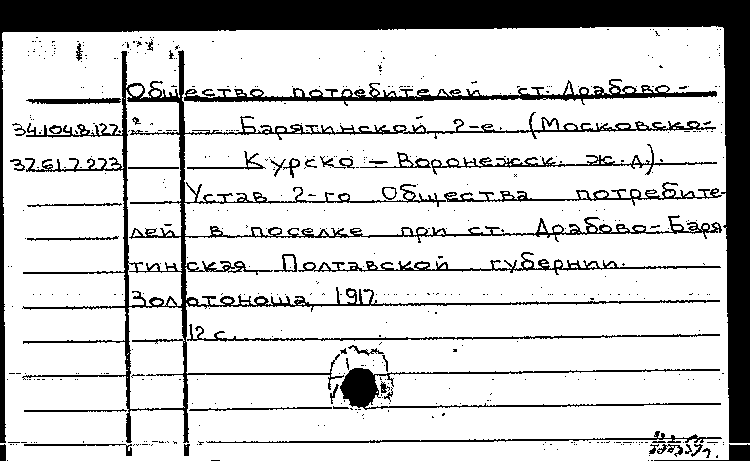 Общество потребителей ст. Драбово-
34.104.8.127. Барятинской, 2-е. (Московско-
37.61.7.273 Курско – Воронежск. ж.д.).
Устав 2-го Общества потребите-
лей в поселке при ст. Драбово-Баря-
тинская, Полтавской губернии.
Золотоноша, 1917.
12 с.